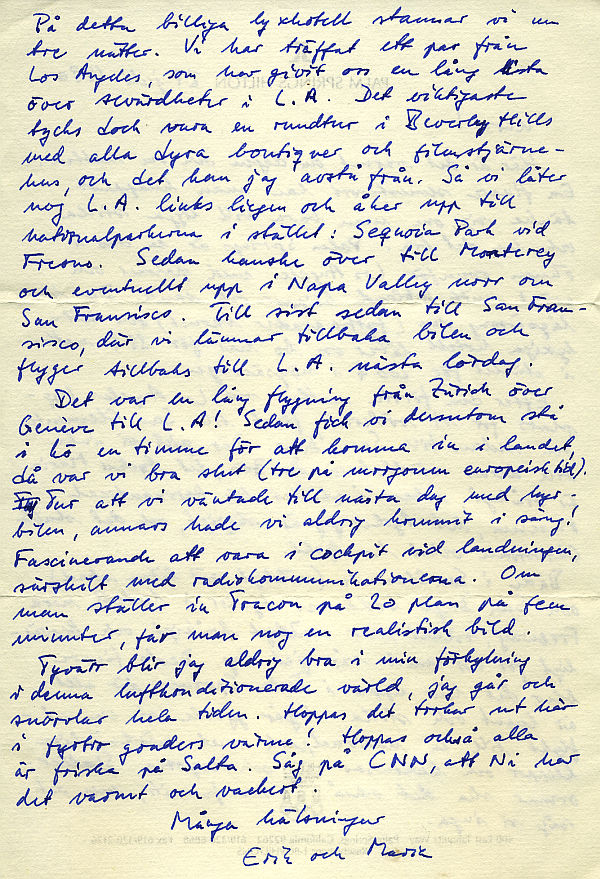 På detta billiga lyxhotell stannar vi nu
tre nätter. Vi har träffat ett par från
Los Angeles, som har givit oss en lång lista
över sevärdheter i L.A. Det viktigaste
tycks dock vara en rundtur i Beverley Hills
med alla dyra boutiquer och filmstjärne-
hus, och det kan jag avstå från. Så vi låter
nog L.A. links liegen och åker upp till
nationalparkerna i stället: Sequoia Park vid
Fresno. Sedan kanske över till Monterey
och eventuellt upp i Napa Valley norr om
San Fransisco. Till sist sedan till San Fran-
sisco, där vi lämnar tillbaka bilen och
flyger tillbaks till L.A. nästa lördag.
Det var en lång flygning från Zürich över
Genève till L.A! Sedan fick vi dessutom stå
i kö en timme för att komma in i landet,
då var vi bra slut (tre på morgonen europeisk tid).
Tur att vi väntade till nästa dag med hyr-
bilen, annars hade vi aldrig kommit i säng!
Fascinerande att vara i cockpit vid landningen,
särskilt med radiokommunikationerna. Om
man ställer in Tracon på 20 plan på fem
minuter, får man nog en realistisk bild.
Tyvärr blir jag aldrig bra i min förkylning
i denna luftkonditionerade värld, jag går och
snörvlar hela tiden. Hoppas det torkar ut här
i fyrtio graders värme! Hoppas också alla
är friska på Salta. Såg på CNN, att Ni har
det varmt och vackert.
Många hälsningar
Erik och Marik